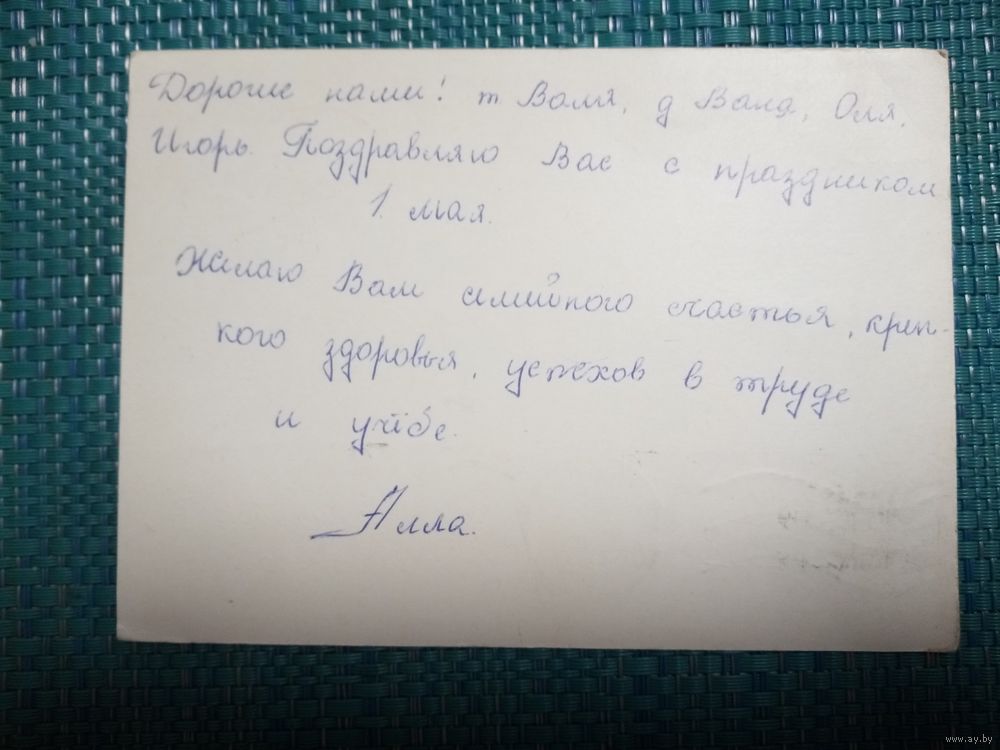 Дорогие нами! т Валя, д Ваня, Оля,
Игорь. Поздравляю Вас с праздником
1. мая.
Желаю Вам семейного счастья, креп-
кого здоровья, успехов в труде
и учёбе.
Алла.
www.ay.by